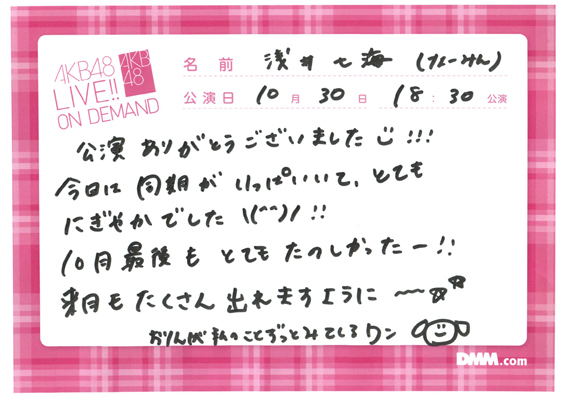 AKB48
LIVE!!
ON DEMAND
AKB
48
名前 浅井七海 (なーみん)
公演日 10月30日 18:30公演
公演 ありがとうございました!!!
今日は 同期が いっぱいいて、とても
にぎやかでした \(^^)/ !!
10月最後も とてもたのしかったー!!
来月もたくさん 出れますように 〜〜
私のことずっとみてしるワン
DMM.com